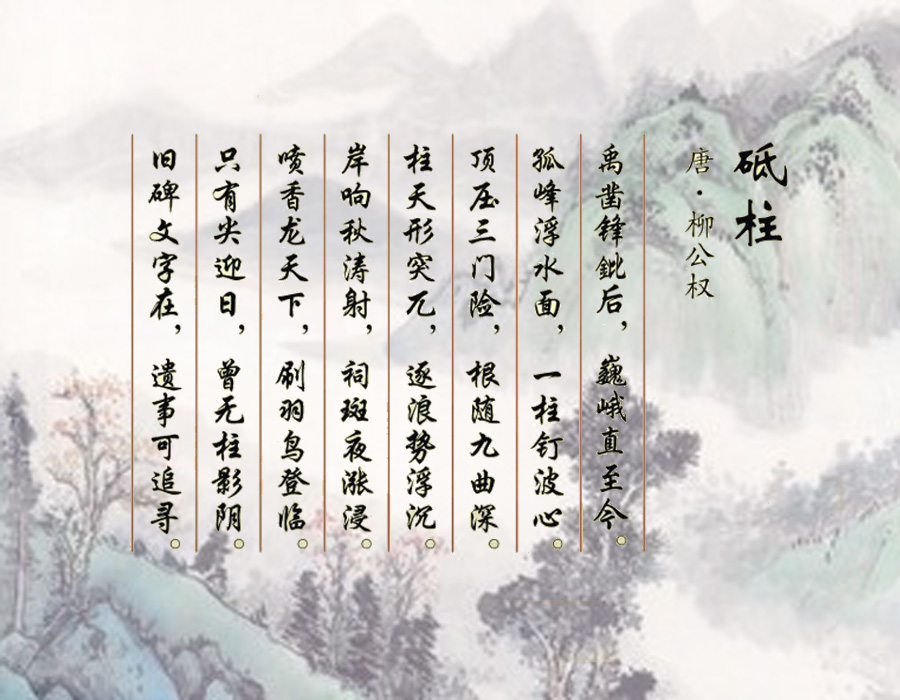 砥柱
唐·柳公权
禹凿锋鈚后，巍峨直至今。
孤峰浮水面，一柱钉波心。
顶压三门险，根随九曲深。
柱天形突兀，逐浪势浮沉。
岸响秋涛射，祠斑夜涨浸。
喷香龙天下，刷羽鸟登临。
只有尖迎日，曾无柱影阴。
旧碑文字在，遗事可追寻。